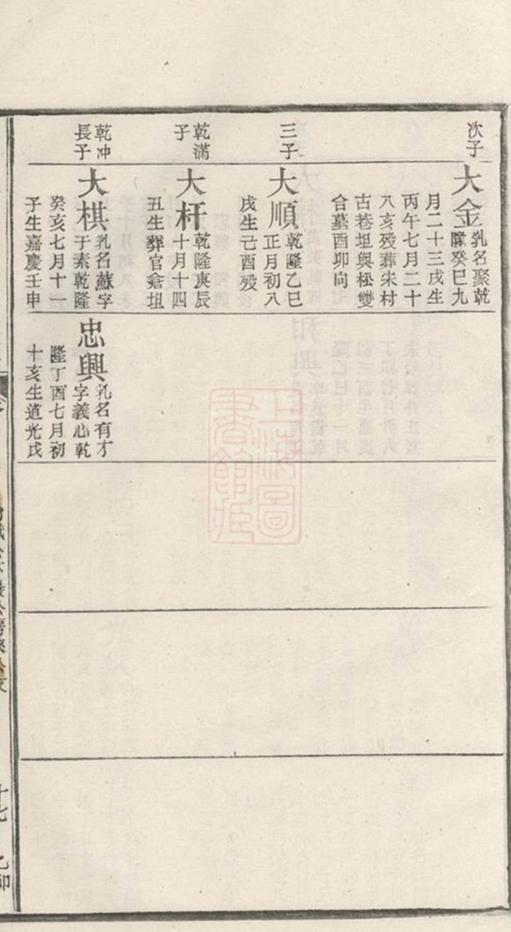 次子
大金
乳名聚乾
隆癸巳九
月二十三戌生
丙午七月二十
八亥歿葬朱村
古巷坦與松燮
合墓酉卯向
三子
大順
乾隆乙巳
正月初八
戌生己酉歿
乾滿
子
大杆
乾隆庚辰
十月十四
丑生葬官倉坦
乾冲
長子
大棋
乳名蘇字
于素乾隆
癸亥七月十一
子生嘉慶壬申
忠興
乳名有才
字義心乾
隆丁酉七月初
十亥生道光戊
上海圖
書館藏